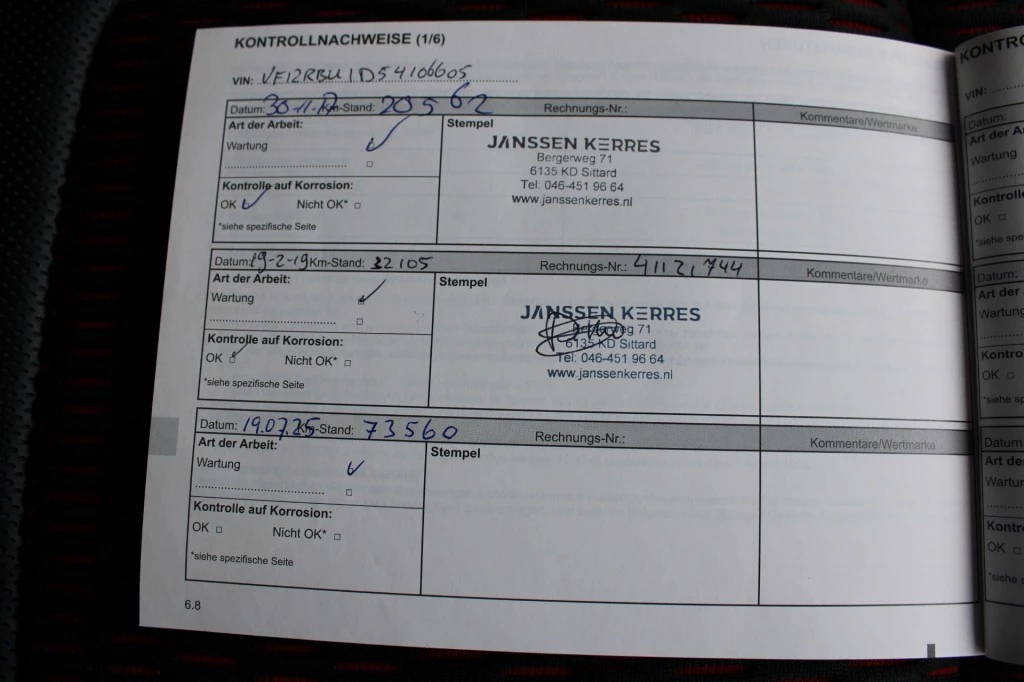 KONTROLLNACHWEISE (1/6)
VIN: VF12RBU1D54106605
Datum: 30-11-17 Km-Stand: 20562 Rechnungs-Nr.: Kommentare/Wertmarke
Art der Arbeit: Stempel
Wartung
JANSSEN KERRES
Bergerweg 71
6135 KD Sittard
Tel: 046-451 96 64
www.janssenkerres.nl
Kontrolle auf Korrosion:
OK Nicht OK*
*siehe spezifische Seite
Datum: 19-2-19 Km-Stand: 32105 Rechnungs-Nr.: 41121744 Kommentare/Wertmarke
Art der Arbeit: Stempel
Wartung
JANSSEN KERRES
Bergerweg 71
6135 KD Sittard
Tel: 046-451 96 64
www.janssenkerres.nl
Kontrolle auf Korrosion:
OK Nicht OK*
*siehe spezifische Seite
Datum: 19.07.25 Km-Stand: 73560 Rechnungs-Nr.: Kommentare/Wertmarke
Art der Arbeit: Stempel
Wartung
Kontrolle auf Korrosion:
OK Nicht OK*
*siehe spezifische Seite
6.8
KONTRO
VIN:
Datum:
Art der A
Wartung
Kontroll
OK
*siehe spe
Datum:
Art der
Wartung
Kontro
OK
*siehe s
Datum
Art de
Wartur
Kontr
OK
*siehe